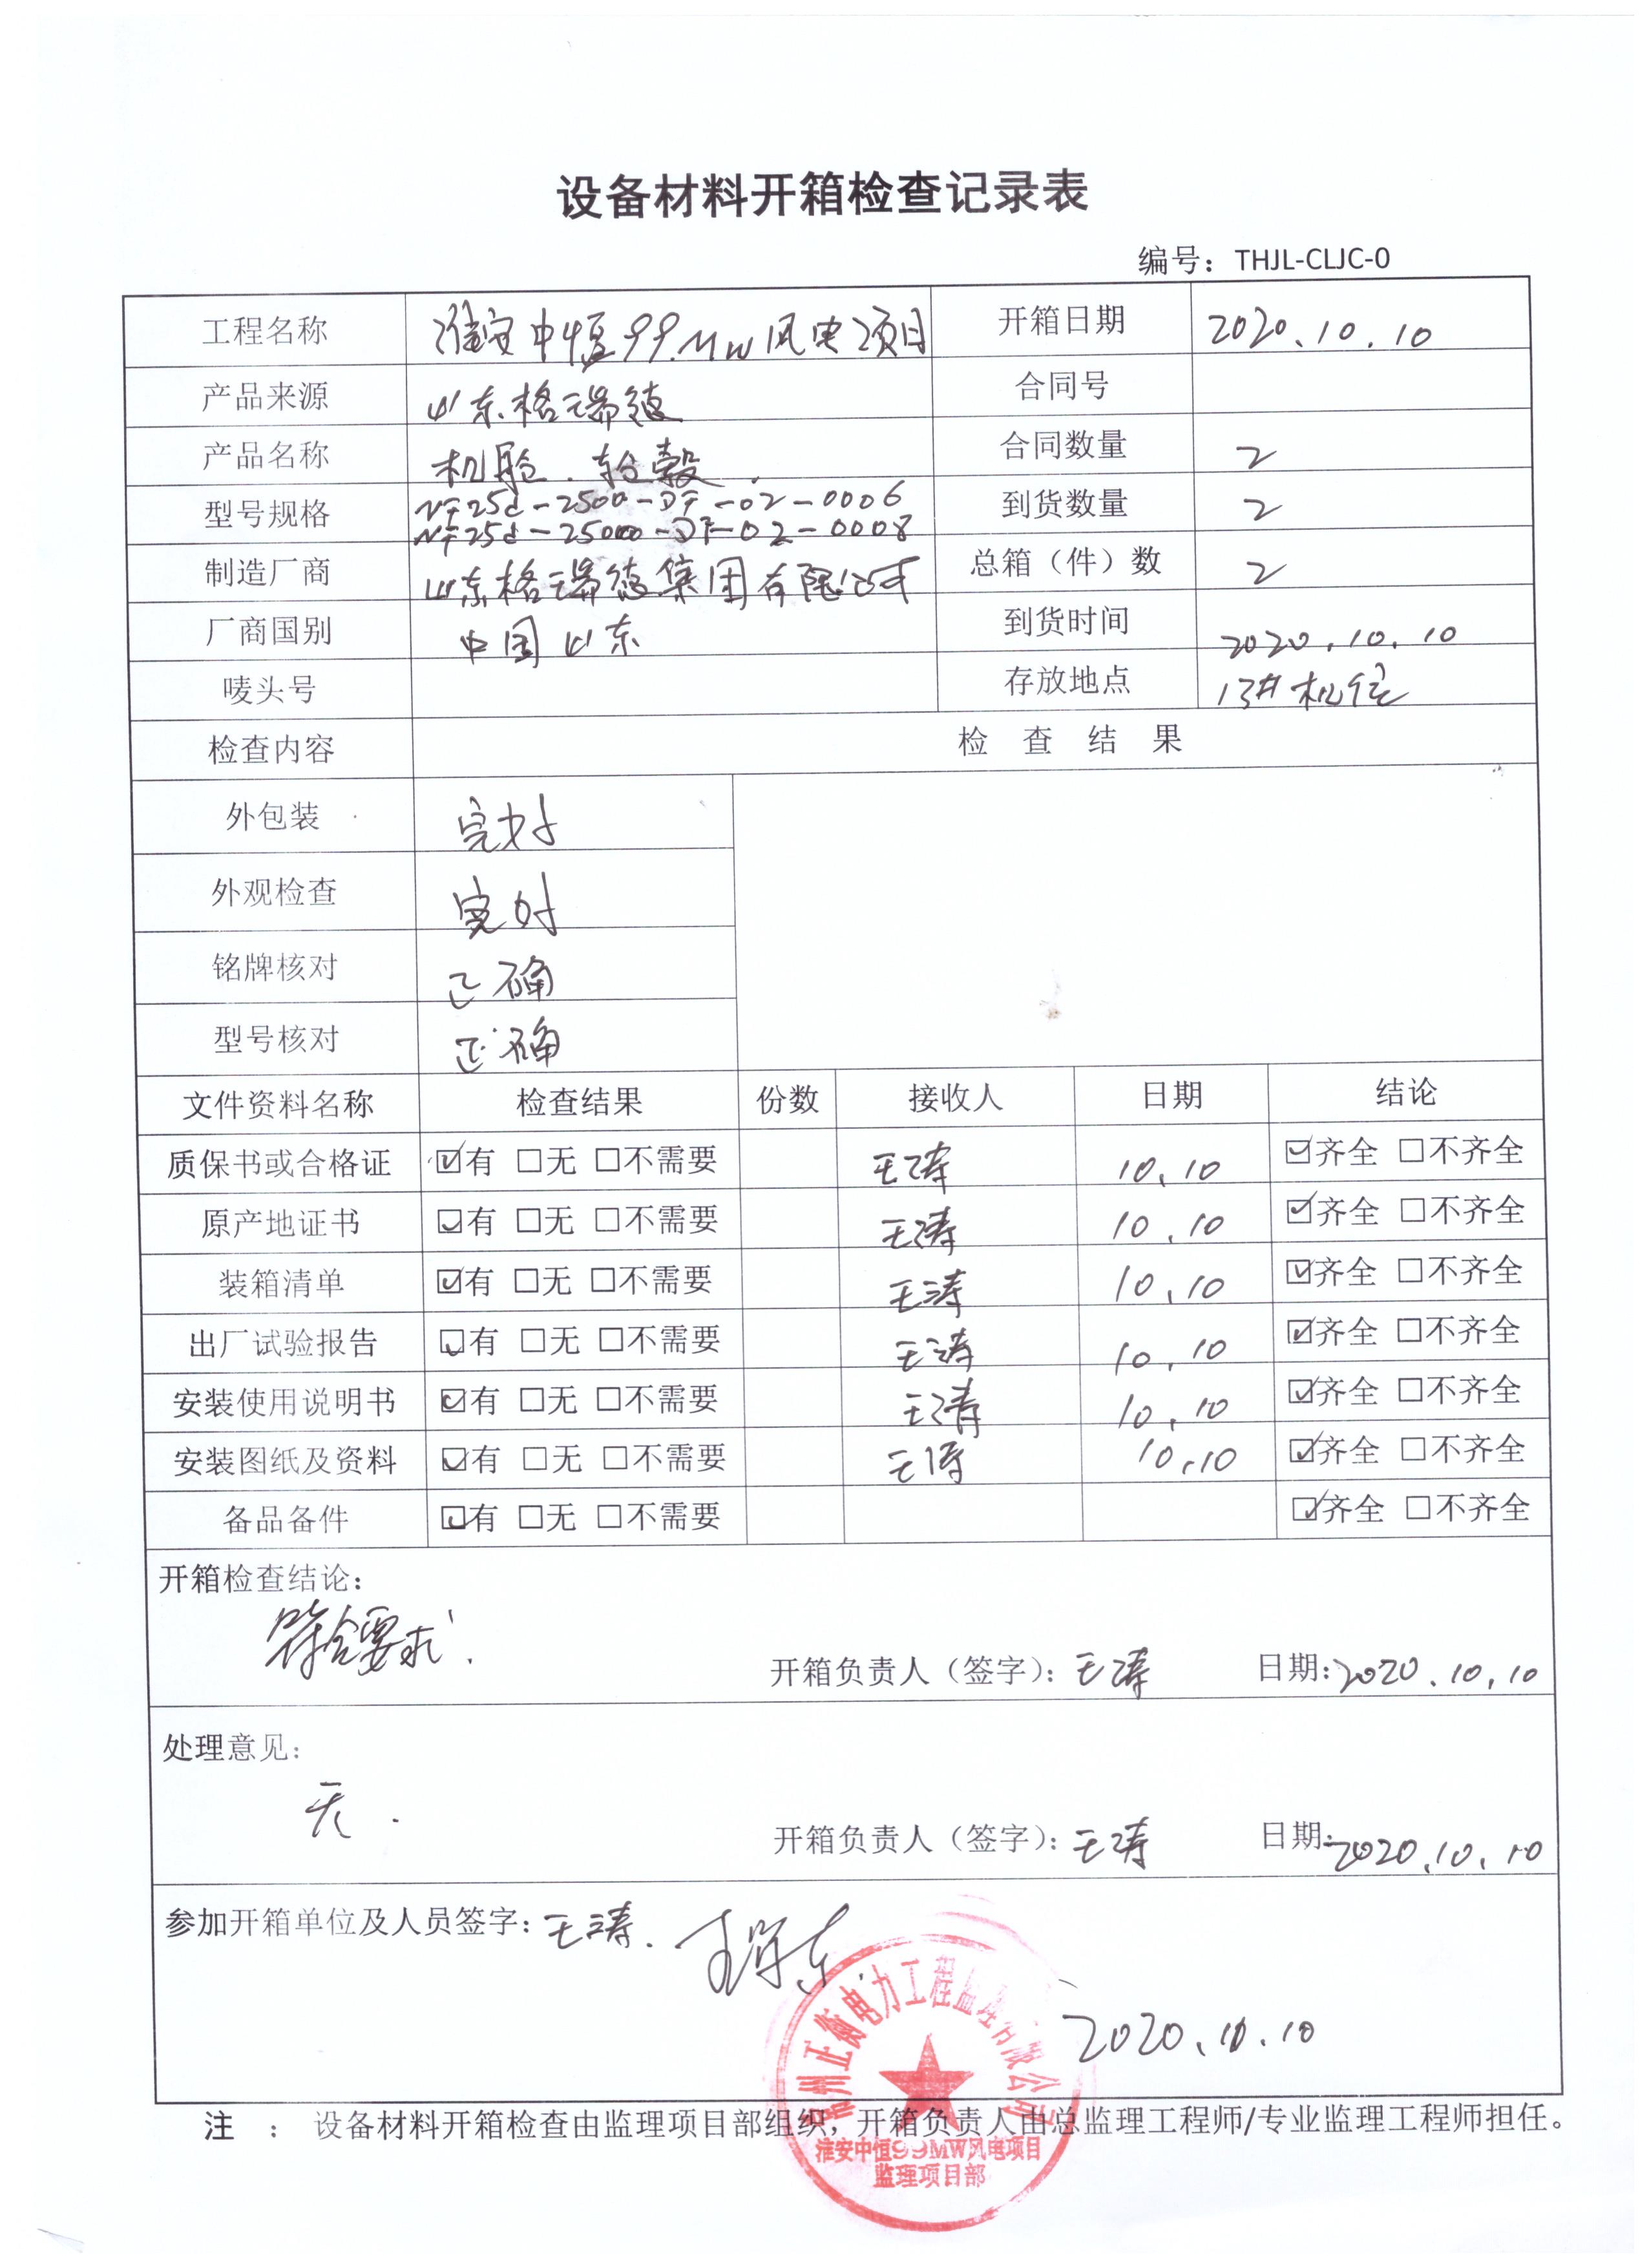 设备材料开箱检查记录表
编号：THJL-CLJC-0
工程名称 淮安中恒99MW风电项目 开箱日期 2020.10.10
产品来源 山东格瑞德 合同号
产品名称 机舱.轮毂. 合同数量 2
型号规格 NF25d-2500-DF-02-0006 到货数量 2
NF25d-25000-DF-02-0008
制造厂商 山东格瑞德集团有限公司 总箱（件）数 2
厂商国别 中国山东 到货时间 2020.10.10
唛头号 存放地点 13#机位
检查内容 检 查 结 果
外包装 完好
外观检查 完好
铭牌核对 正确
型号核对 正确
文件资料名称 检查结果 份数 接收人 日期 结论
质保书或合格证 ☑有 □无 □不需要 王涛 10.10 ☑齐全 □不齐全
原产地证书 ☑有 □无 □不需要 王涛 10.10 ☑齐全 □不齐全
装箱清单 ☑有 □无 □不需要 王涛 10.10 ☑齐全 □不齐全
出厂试验报告 ☑有 □无 □不需要 王涛 10.10 ☑齐全 □不齐全
安装使用说明书 ☑有 □无 □不需要 王涛 10.10 ☑齐全 □不齐全
安装图纸及资料 ☑有 □无 □不需要 王涛 10.10 ☑齐全 □不齐全
备品备件 ☑有 □无 □不需要 ☑齐全 □不齐全
开箱检查结论：
符合要求.
开箱负责人（签字）：王涛 日期：2020.10.10
处理意见：
无.
开箱负责人（签字）：王涛 日期：2020.10.10
参加开箱单位及人员签字：王涛.
常州正衡电力工程监理有限公司
2020.10.10
注 ： 设备材料开箱检查由监理项目部组织，开箱负责人由总监理工程师/专业监理工程师担任。
淮安中恒99MW风电项目
监理项目部